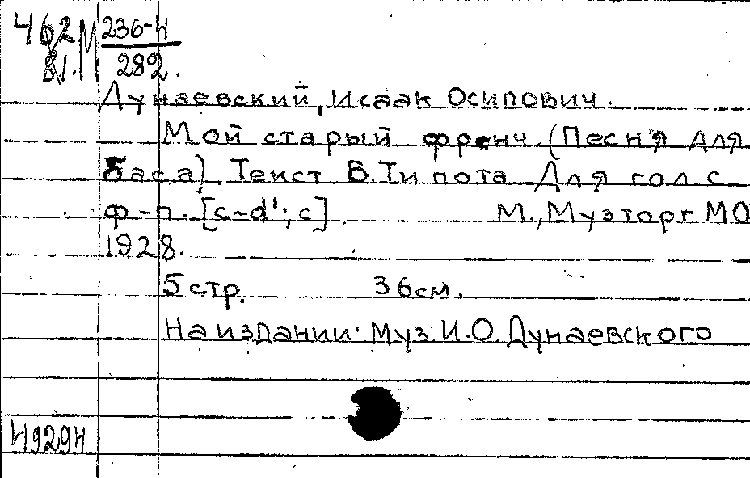 462 М 236-4
81. 282.
Дунаевский, Исаак Осипович.
Мой старый френч. (Песня для
баса). Текст В. Типота. Для гол. с
ф-п. [c-d'; c]. М., Музторг МО
1928.
5 стр. 36 см.
На издании: Муз. И.О. Дунаевского